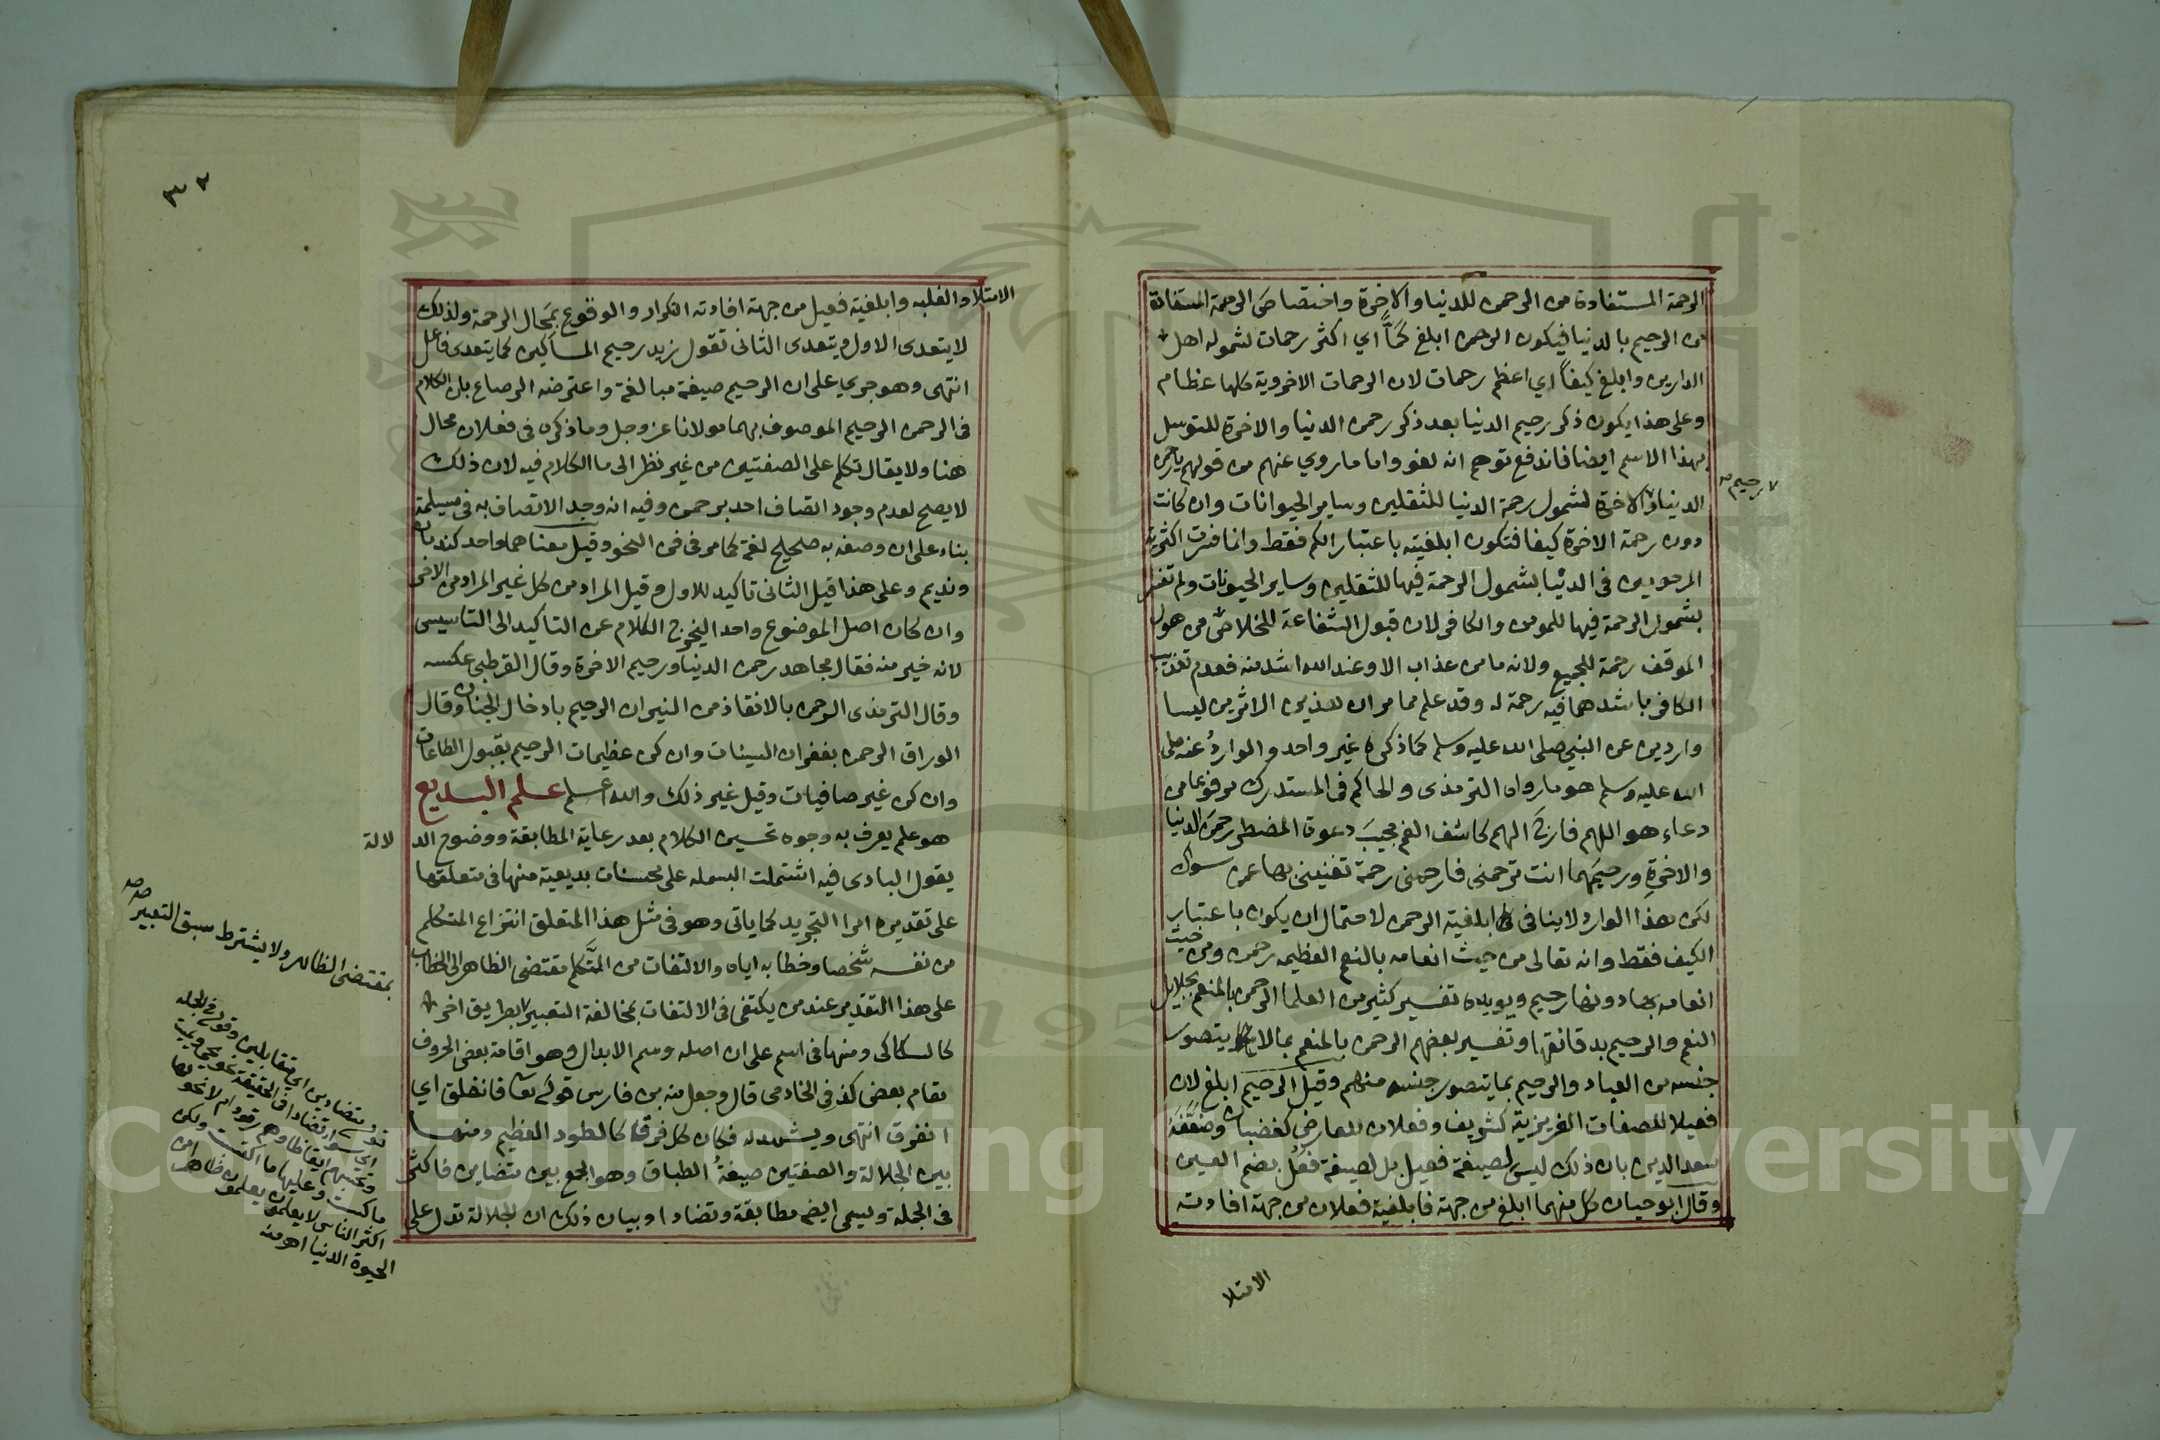 الرحمة المستفادة من الرحمن للدنيا والاخرة واختصاص الرحمة المستفادة
من الرحيم بالدنيا فيكون الرحمن ابلغ كمًّا اي اكثر رحمات لشموله اهل
الدارين وابلغ كيفاً اي اعظم رحمات لان الرحمات الاخروية كلها عظام
وعلى هذا يكون ذكر رحيم الدنيا بعد ذكر رحمن الدنيا والاخرة للتوسل
بهذا الاسم ايضا فاندفع توهم انه لغو واما ما روي عنهم من قولهم يا رحمن
الدنيا والاخرة لشمول رحمة الدنيا للثقلين وساير الحيوانات وان كانت
ورحيم
دون رحمة الاخرة كيفا فتكون ابلغيته باعتبار الكم فقط وانما فسرت اكثرية
المرحومين في الدنيا بشمول الرحمة فيها للثقلين وساير الحيونات ولم تفسر
بشمول الرحمة فيها للمومن والكافر لان قبول الشفاعة للخلاص من هول
الموقف رحمة للجميع ولانه ما من عذاب الا وعند الله اشد منه فعدم تعذيب
الكافر باشد مما فيه رحمة له وقد علم مما مر ان هذين الاثرين ليسا
واردين عن النبي صلى الله عليه وسلم كما ذكره غير واحد والوارد عنه صلى
الله عليه وسلم هو ما رواه الترمذى والحاكم فى المستدرك مرفوعا من
دعاء هو اللهم فارج الهم كاشف الغم مجيبَ دعوة المضطر رحمن الدنيا
والاخرةِ ورحيمَهما انت ترحمنى فارحمنى رحمة تغنينى بها عن سواك
لكن هذا الوارد لا ينافى ابلغية الرحمن لاحتمال ان يكون باعتبار
الكيف فقط وانه تعالى من حيث انعامه بالنعم العظيمه رحمن ومن حيث
انعامه بما دونها رحيم ويويده تفسير كثير من العلما الرحمن بالمنعم بجلايل
النعم والرحيم بدقائقها وتفسير بعضهم الرحمن بالمنعم بما لا يتصور
جنسه من العباد والرحيم بما يتصور جنسه منهم وقيل الرحيم ابلغ لان
فعيلا للصفات الغريزية كشريف وفعلان للعارض كغضبان وضعَّفه
سعد الدين بان ذلك ليس لصيغة فعيل بل لصيغة فعُل بضم العين
وقال ابو حيان كل منهما ابلغ من جهة فابلغية فعلان من جهة افادته
الامتلا
٣٢
الامتلا والغلبه وابلغية فعيل من جهة افادته التكرار والوقوع بمحال الرحمة ولذلك
لا يتعدى الاول ويتعدى الثانى تقول زيد رحيم المساكين كما يتعدى فاعل
انتهى وهو جري على ان الرحيم صيغة مبالغة واعترضه الرصاع بان الكلام
فى الرحمن الرحيم الموصوف بهما مولانا عز وجل وما ذكره فى فعلان محال
هنا ولا يقال تكلم على الصفتين من غير نظر الى ما الكلام فيه لان ذلك
لا يصح لعدم وجود اتصاف احد برحمن وفيه انه وجد الاتصاف به فى مسيلمة
بناء على ان وصفه به صحيح لغة كما مر فى فن النحو وقيل معناهما واحد كندمان
ونديم وعلى هذا قيل الثانى تاكيد للاول وقيل المراد من كل غير المراد من الاخر
وان كان اصل الموضوع واحد اليخرج الكلام عن التاكيد الى التاسيس
لانه خير منه فقال مجاهد رحمن الدنيا ورحيم الاخرة وقال القرطبى عكسه
وقال الترمذى الرحمن بالانقاذ من النيران الرحيم بادخال الجنان وقال
الوراق الرحمن بغفران السيئات وان كن عظيمات الرحيم بقبول الطاعات
وان كن غير صافيات وقيل غير ذلك والله اعلم علم البديع
هو علم يعرف به وجوه تحسين الكلام بعد رعاية المطابقة ووضوح الد
لالة
يقول البادى فيه اشتملت البسمله على محسنات بديعية منها فى متعلقها
على تقديره اقرا التجريد كما ياتى وهو فى مثل هذا المتعلق انتزاع المتكلم
من نفسه شخصا وخطابه اياه والالتفات من المتَّكلم مقتضى الظاهر الى الخطاب
على هذا التقدير عند من يكتفى فى الالتفات بمخالفة التعبير بطريق اخر
كالسكاكى ومنها فى اسم على ان اصله وسم الابدال وهو اقامة بعض الحروف
مقام بعض كذا فى الخادمى قال وجعل منه بن فارس قوله تعا فانفلق اي
انفرق انتهى ويشهد له فكان كل فرق كالطود العظيم ومنها
بين الجلالة والصفتين صيغةُ الطباق وهو الجمع بين متضادين فاكثر
فى الجملة ويسمى ايضا مطابقة وتضادا وبيان ذلك ان الجلالة تدل على
بمقتضى الظاهر ولا يشترط سبق التعبير
قوله متضادين اي متقابلين وقوله فى الجمله
وتحسبهم ايقاظا وهم رقود
اكثر الناس لا يعلمون يعلمون ظاهرا من
الحيوة الدنيا اه منه
Copyright © King Saud University
1957